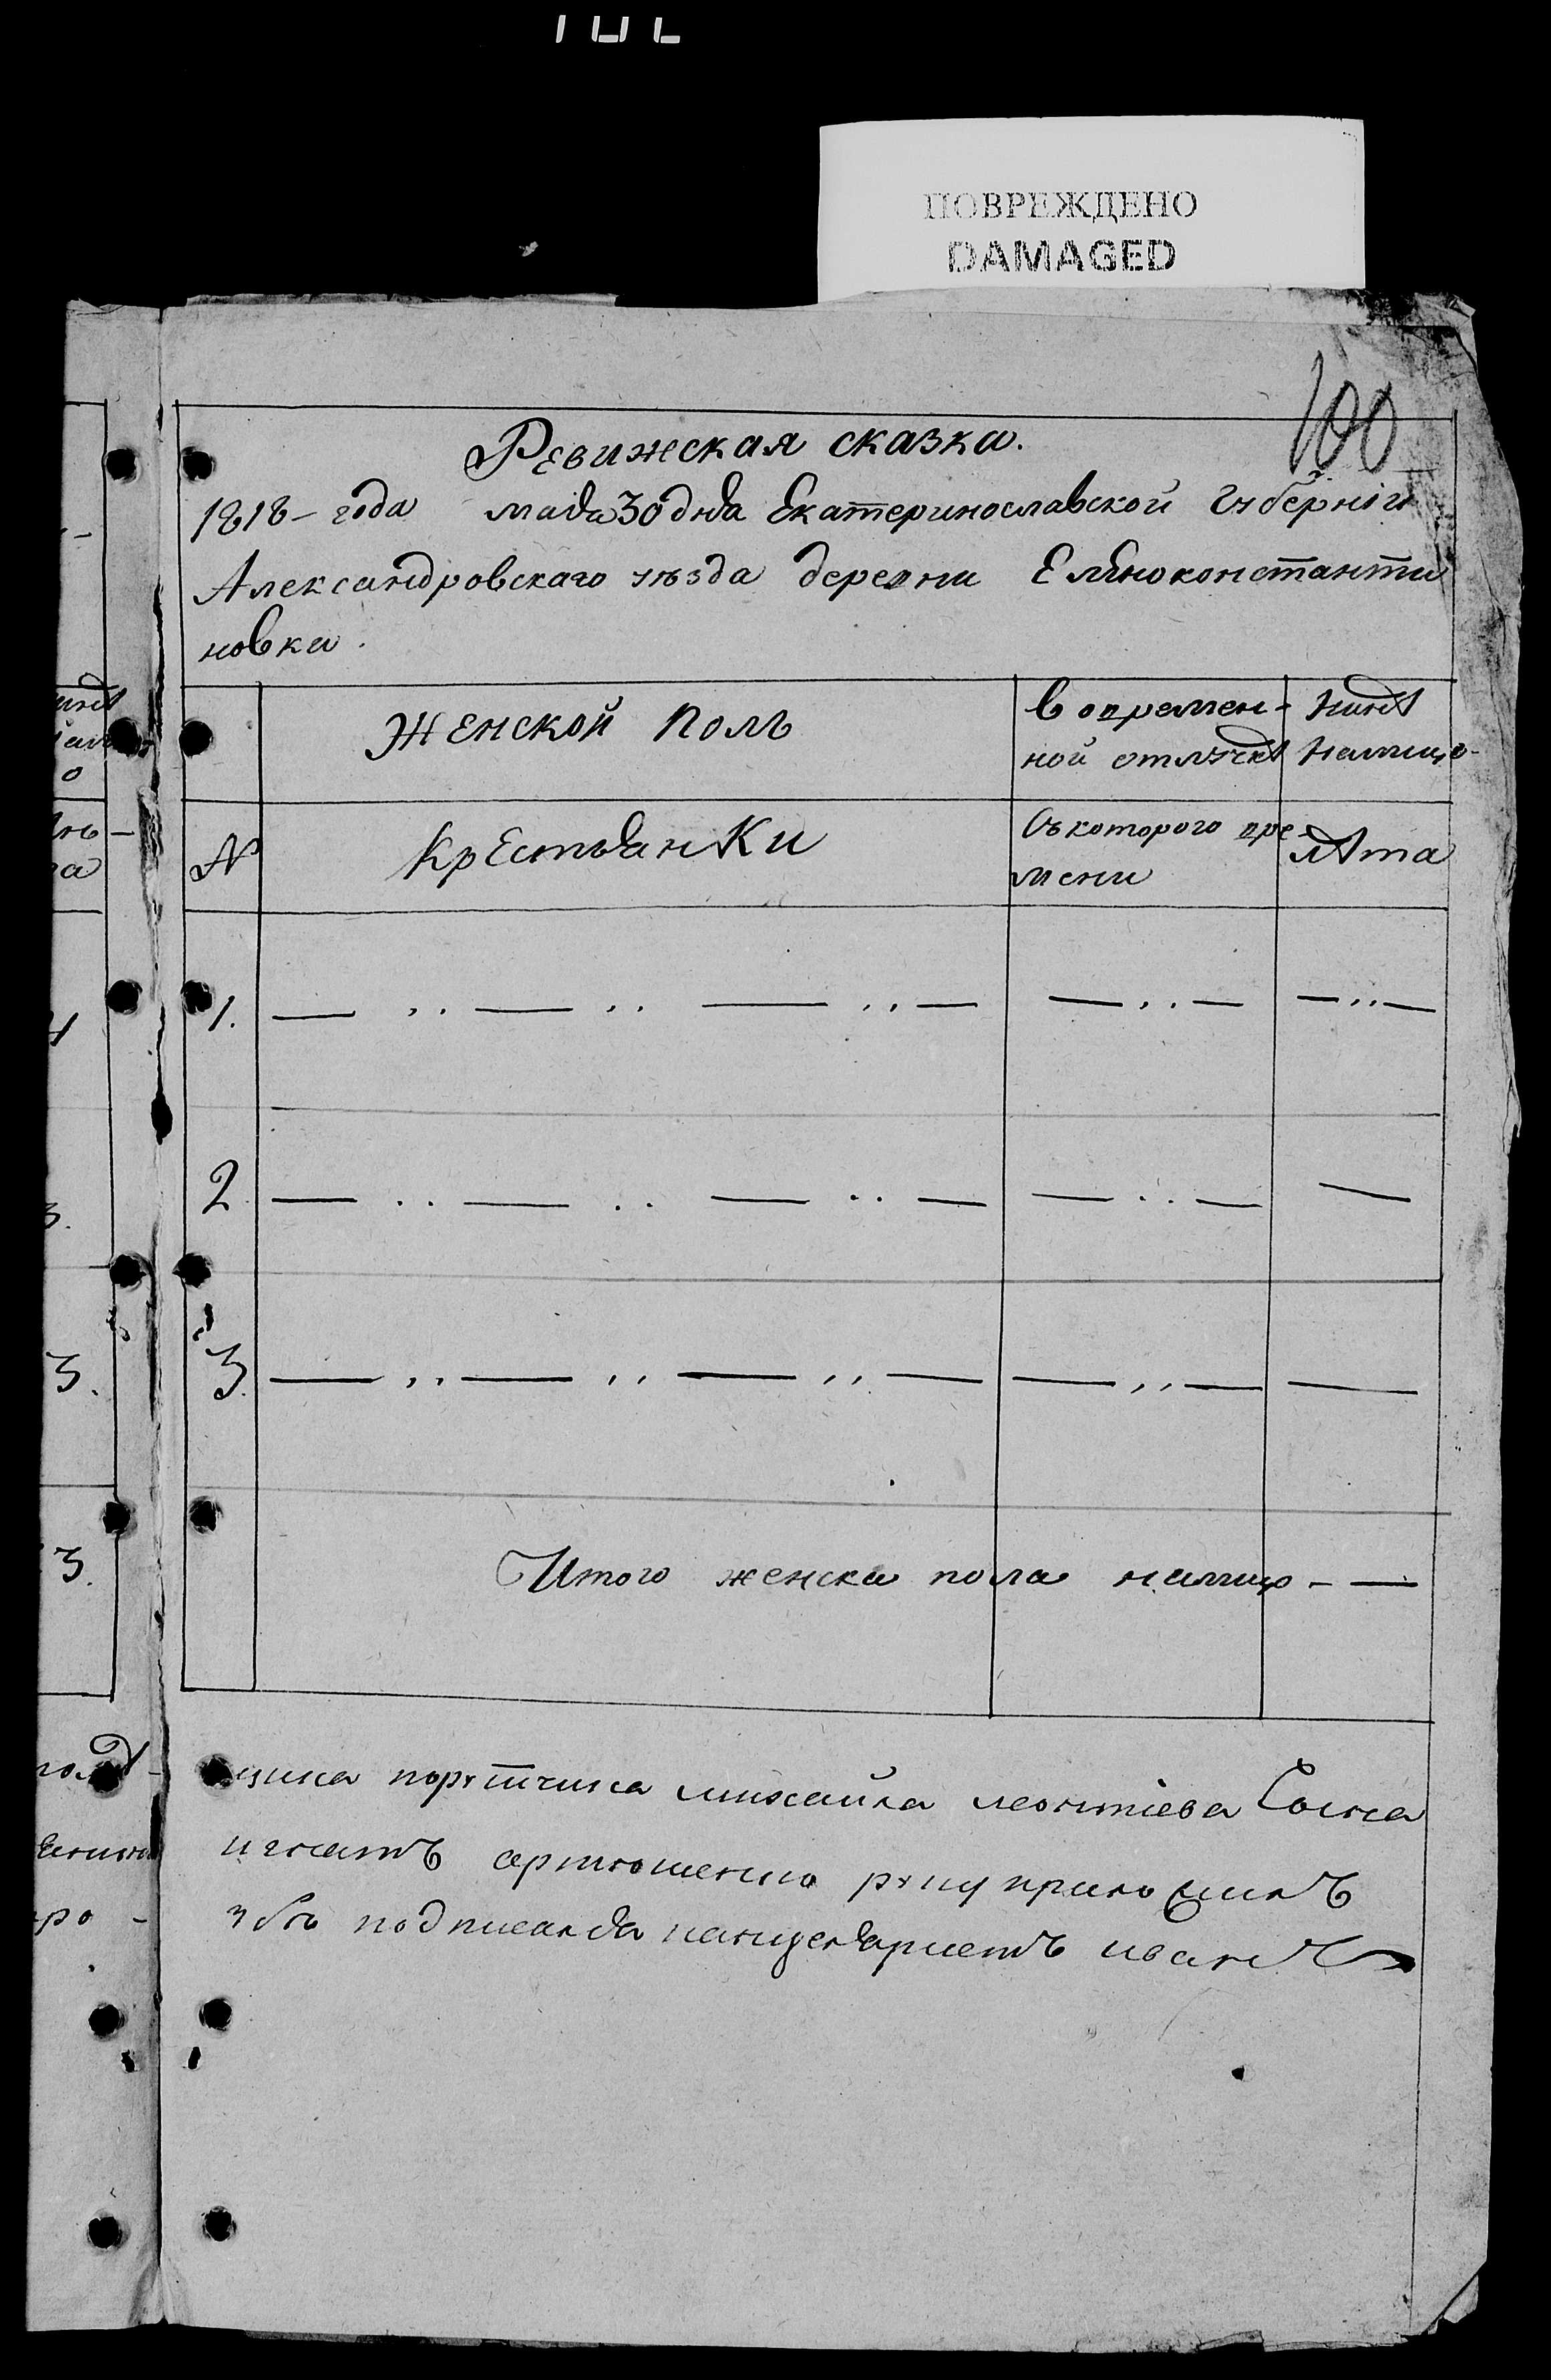 ПОВРЕЖДЕНО
DAMAGED
100
Ревижская сказка.
1818 – года маія 30 дня Екатеринославской Губерніи
Александровскаго уѣзда деревни Еленоконстанти
новки.
Женской полъ
Во времен-
ной отлучкѣ
Нынѣ
Налицо
№
Крестьянки
Съ которого вре
мени
Лѣта
1.
2
3.
Итого женска пола налицо – —
щика порутчика михайла леонтіева Сына
подписался канцеляристъ иванъ
3.
3.